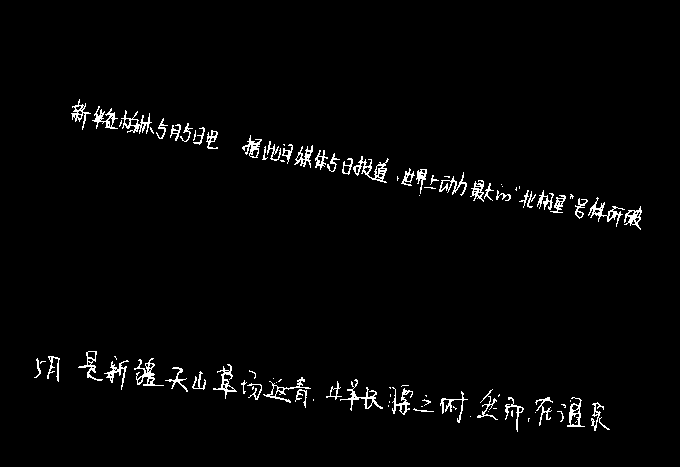 新华社柏林5月5日电 据此间媒体5日报道,世界上动力最大的“北极星”号科研破
5月 是新疆天山草场返青,牛羊长膘之时.然而,在温泉